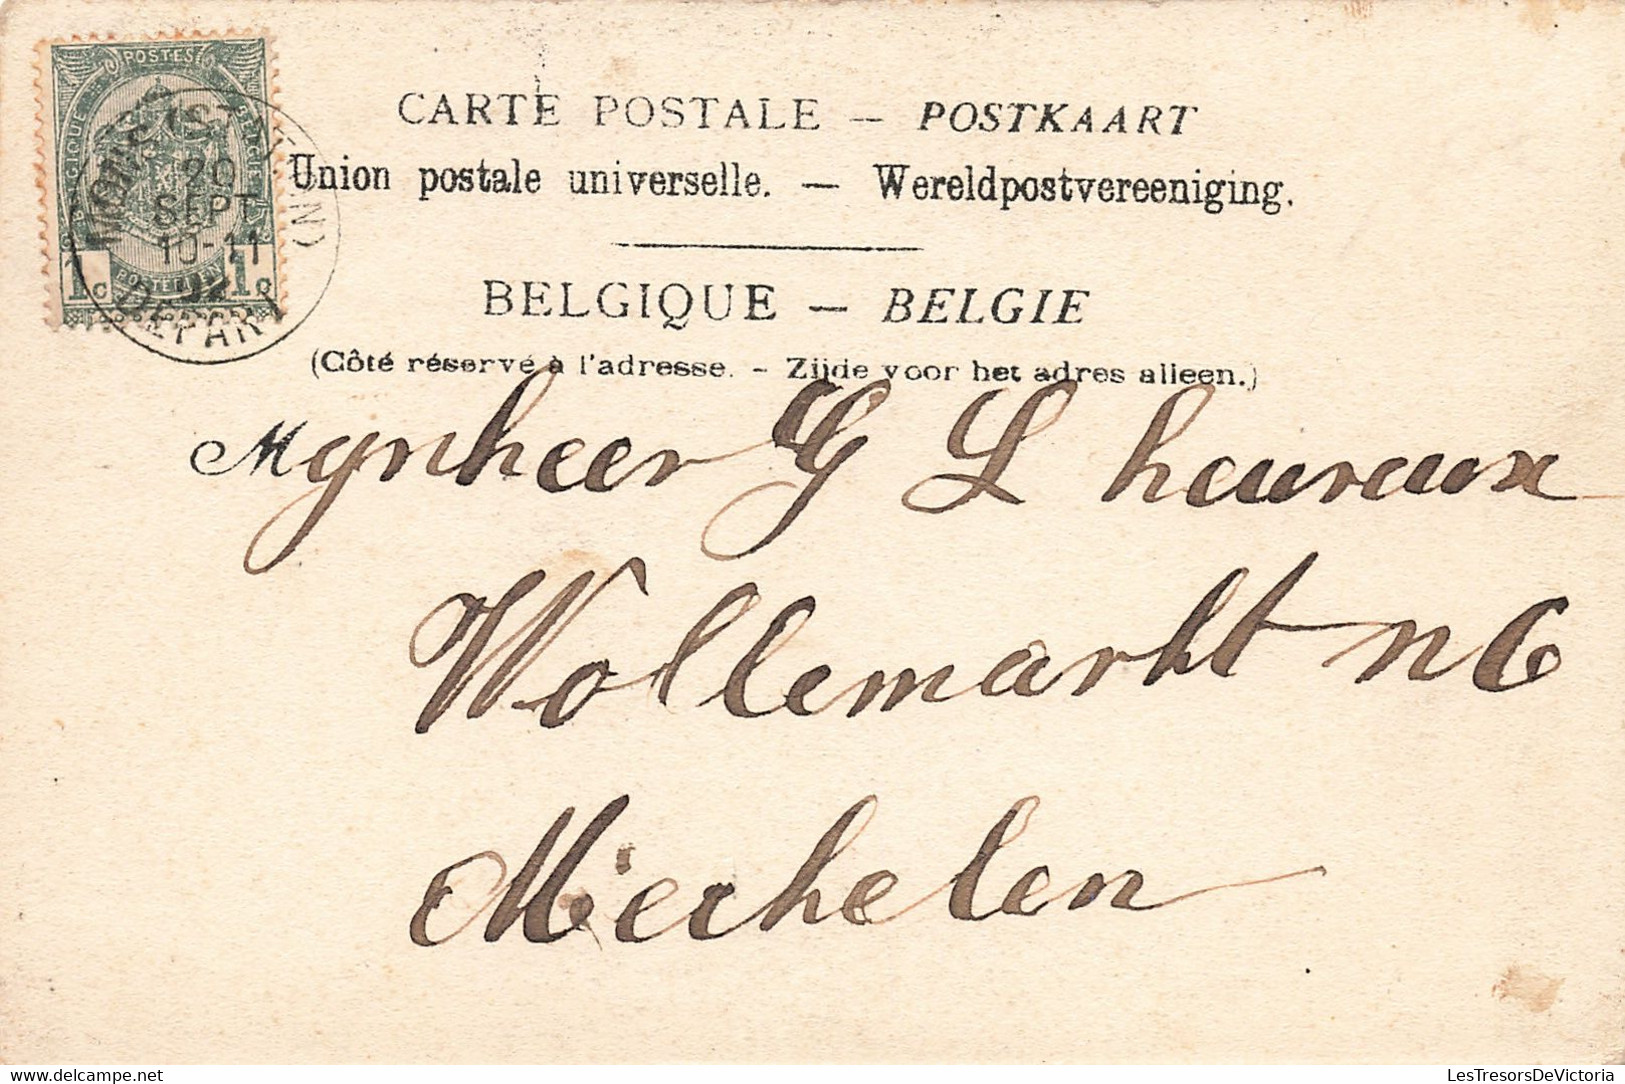 POSTES
BELGIQUE
BELGIE
1c 1c
POSTERIJEN
MONS (STATION)
20
SEPT
10-11
DEPART
CARTE POSTALE — POSTKAART
Union postale universelle. — Wereldpostvereeniging.
BELGIQUE — BELGIE
(Côté réservé à l'adresse. - Zijde voor het adres alleen.)
Mynheer G L heureux
Wollemarkt n 6
Mechelen
LesTresorsDeVictoria